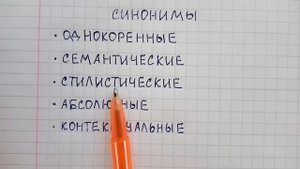 СИНОНИМЫ
· ОДНОКОРЕННЫЕ
· СЕМАНТИЧЕСКИЕ
· СТИЛИСТИЧЕСКИЕ
· АБСОЛЮТНЫЕ
· КОНТЕКСТУАЛЬНЫЕ